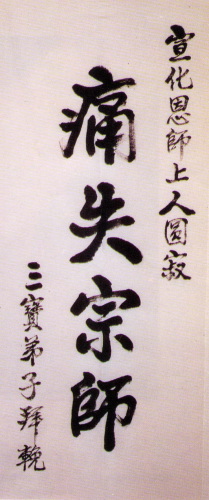 宣化恩師上人圓寂
痛失宗師
三寶弟子拜輓